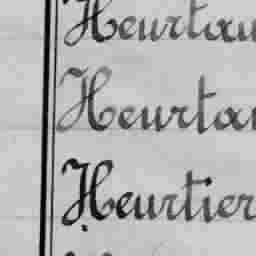 Heurtau
Heurtau
Heurtier